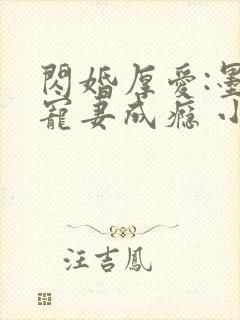 閃婚厚愛:墨
寵妻成癮 小
汪吉鳳